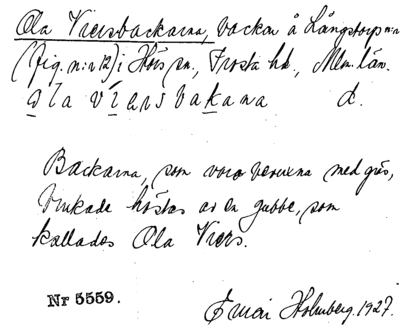 Ola Viersbackarna, backar å Långstorp n:r
(fig. n:r 12) i Hörs sn., Frosta hd., Mlm. län.
ola viersbakana d.
Backarna, som voro bevuxna med gräs,
brukade höstas av en gubbe, som
kallades Ola Viers.
Nr 5559.
Holmberg. 1927.